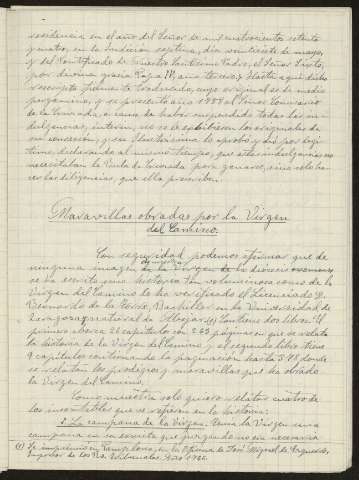 residencia en el año del Señor de mil cuatrocientos setenta
y cuatro, en la Indicción septima, día veintisiete de mayo,
y del Pontificado de Nuestro Santísimo Padre, el Señor Sixto,
por divina gracia Papa IV, año tercero; Hasta aquí dicho
rescripto fielmente traducido, cuyo original es de medio
pergamino, y se presentó año 1758 al Señor Comisario
de la Cruzada, a causa de haber suspendido todas las in-
dulgencias, interin, no se le exhibiesen los originales de
su concesión; y su Ilustrísima lo aprobó y dió por legí-
timo, declarando al mismo tiempo, que estas indulgencias no
necesitaban la Bula de Cruzada para ganarse, sino solo ha-
cer las diligencias, que ella prescribe.
Maravillas obradas por la Virgen
del Camino.
Con seguridad podemos afirmar que de
ninguna imagen de la Virgen de la diócesis
se ha escrito una historia tan voluminosa como de la
Virgen del Camino la ha verificado el Licenciado D.
Leonardo de la Tierra, Bachiller en la Universidad de
Zaragoza, natural de (1) Contiene dos libros. El
primero abarca 26 capítulos con 263 páginas en que se relata
la historia de la Virgen del Camino y el segundo libro tiene
9 capítulos continuando la paginación hasta 378 donde
se relatan los prodigios y maravillas que ha obrado
la Virgen del Camino.
Como muestra solo quiero relatar cuatro de
los innumerables que se refieren en la historia:
1. La campana de la Virgen. Tenía la Virgen una
campana en su ermita que juzgando no ser necesaria
(1) Se imprimió en Pamplona, en la Oficina de José Miguel de Ezquerro,
Impresor de los Rs. Tribunales. Año